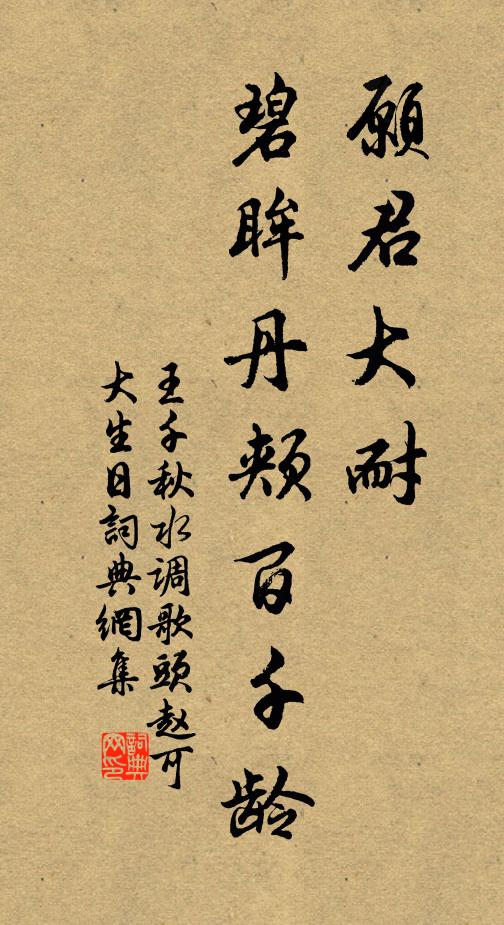 願君大耐
碧眸丹頰百千齡
王千秋水调歌頭赵可
大生日詞典網集
詞典
网印